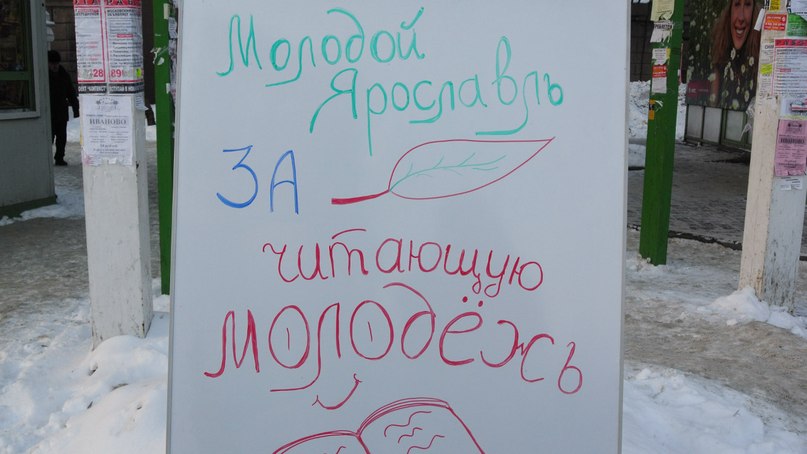 Молодой
Ярославль
ЗА
читающую
молодёжь
ИВАНОВО